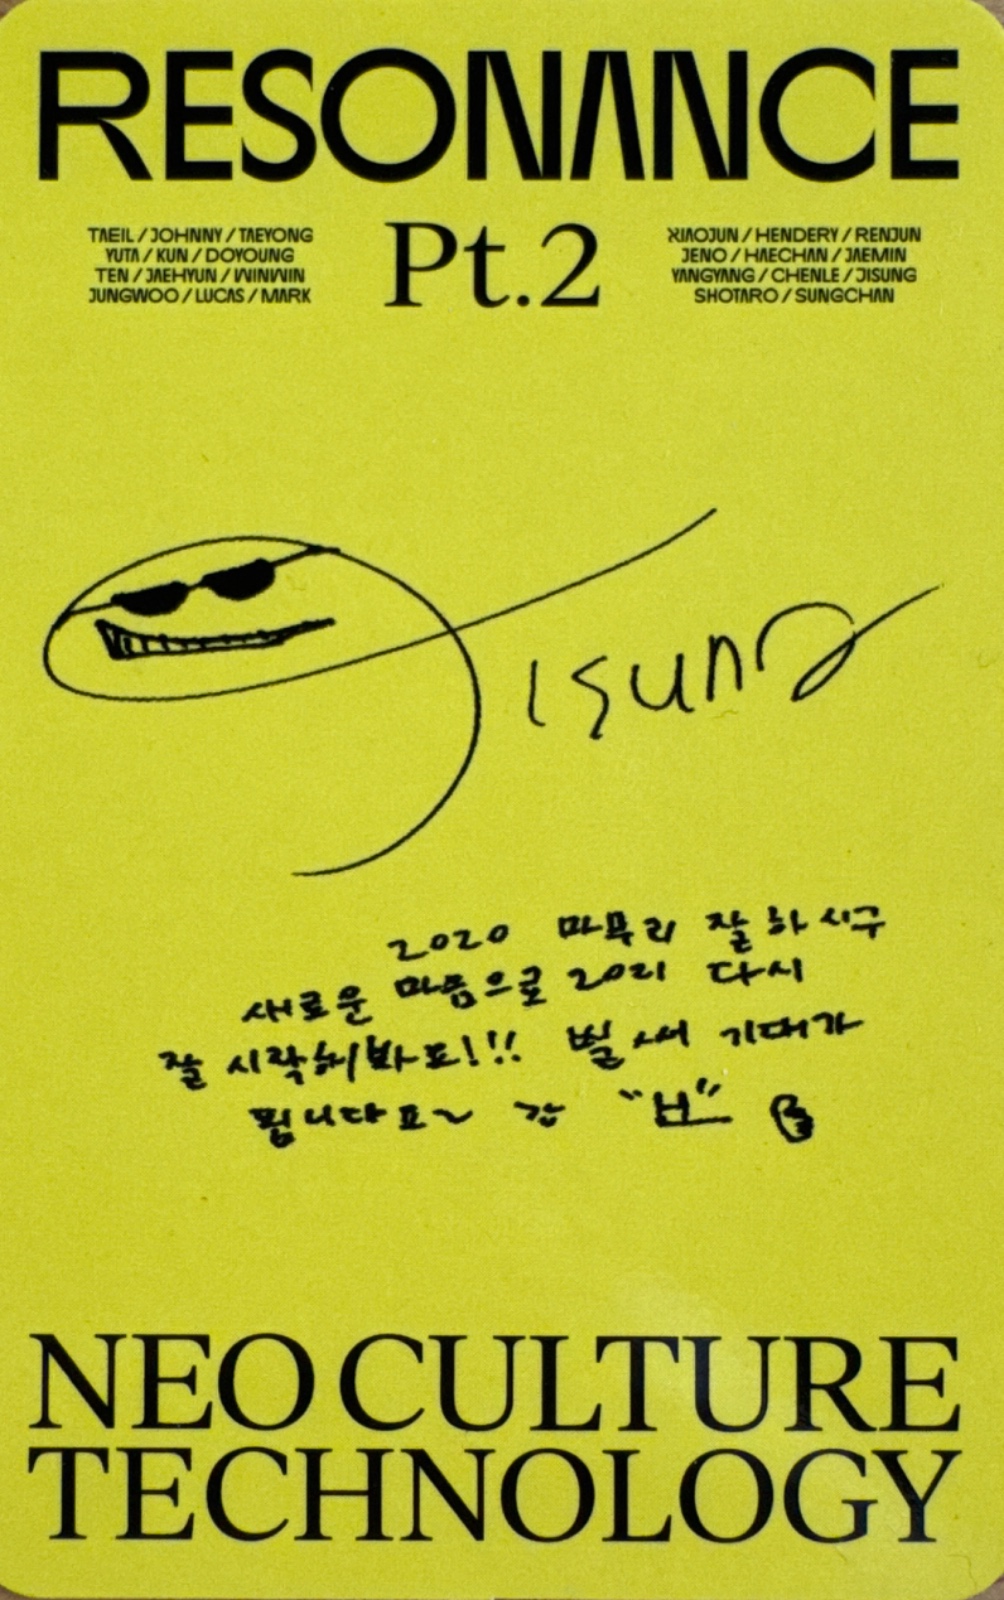 RESONANCE
Pt.2
TAEIL / JOHNNY / TAEYONG
YUTA / KUN / DOYOUNG
TEN / JAEHYUN / WINWIN
JUNGWOO / LUCAS / MARK
XIAOJUN / HENDERY / RENJUN
JENO / HAECHAN / JAEMIN
YANGYANG / CHENLE / JISUNG
SHOTARO / SUNGCHAN
Jisung
2020 마무리 잘 하시구
새로운 마음으로 2021 다시
잘 시작해봐요!!! 벌써 기대가
됩니다요~ 강
NEO CULTURE
TECHNOLOGY